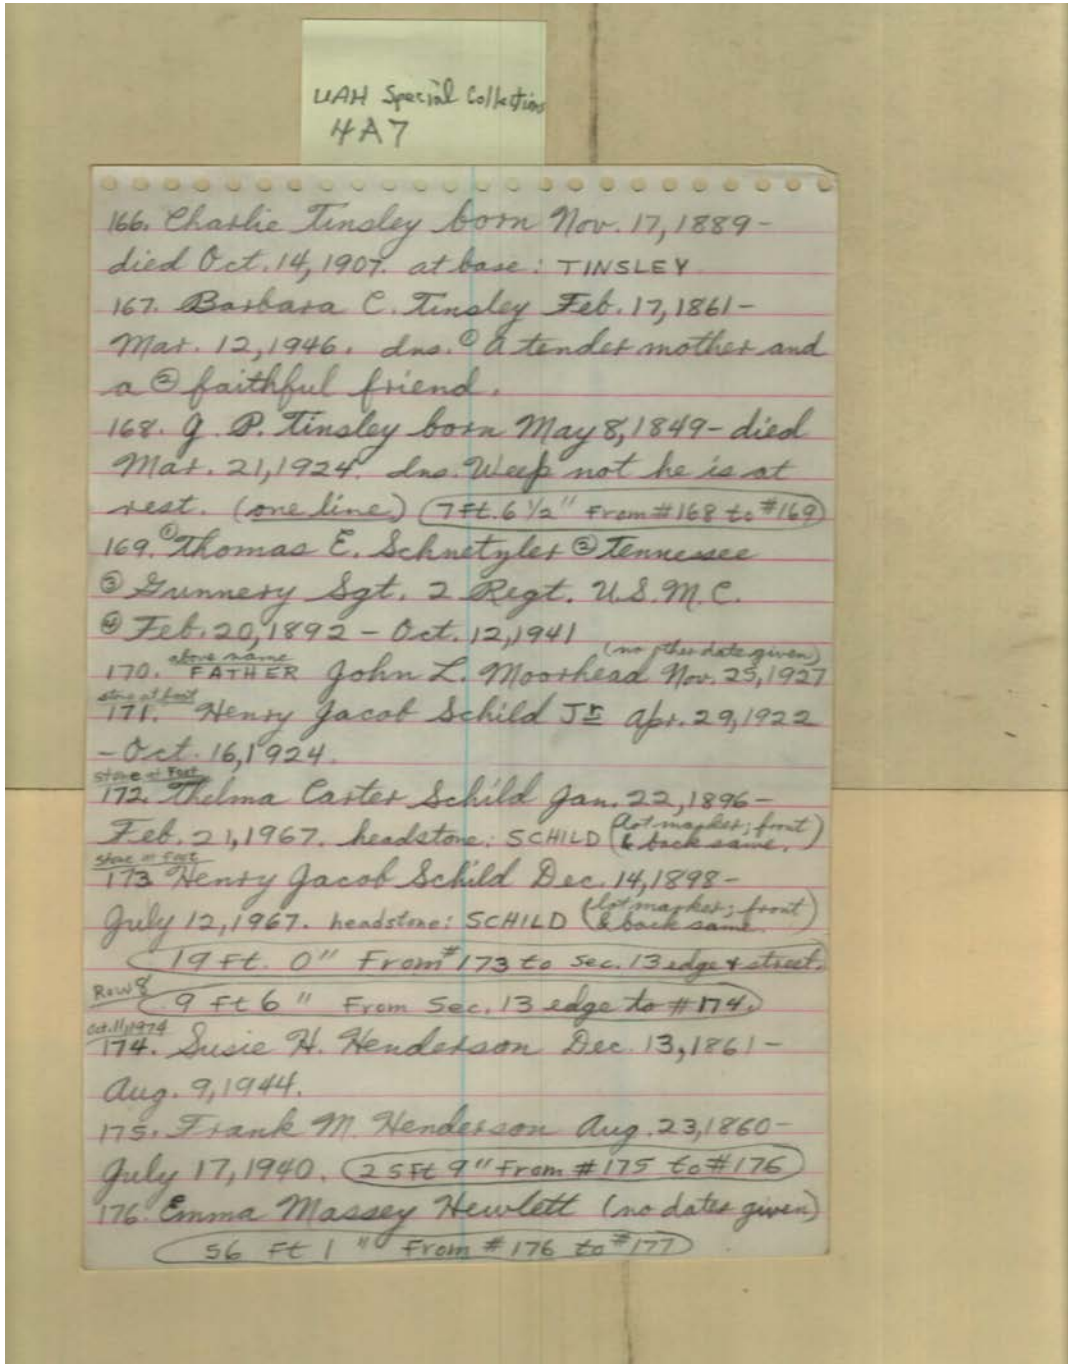 UAH Special Collections
4A7
166. Charlie Tinsley born Nov. 17, 1889-
died Oct. 14, 1907. at base: TINSLEY
167. Barbara C. Tinsley Feb. 17, 1861-
Mar. 12, 1946. dns. ① A tender mother and
a ② faithful friend.
168. G. P. Tinsley born May 8, 1849- died
Mar. 21, 1924. dns. Weep not he is at
rest. (one line) (7 Ft. 6 1/2" From #168 to #169)
169. ① Thomas E. Schnetyler ② Tennessee
③ Gunnery Sgt. 2 Regt. U.S.M.C.
④ Feb. 20, 1892 - Oct. 12, 1941
(no other date given)
above name
170. FATHER John L. Moorhead Nov. 25, 1927
stone at foot
171. Henry Jacob Schild Jr Apr. 29, 1922
- Oct. 16, 1924.
stone at Foot
172. Thelma Carter Schild Jan. 22, 1896-
Feb. 21, 1967. headstone: SCHILD (lot marker; front
& back same.)
stone at Foot
173 Henry Jacob Schild Dec. 14, 1898-
July 12, 1967. headstone: SCHILD (lot marker; front
& back same.)
19 Ft. 0" From #173 to Sec. 13 edge & street.
Row 8
9 Ft 6" From Sec. 13 edge to #174.
Oct. 11, 1974
174. Susie H. Henderson Dec. 13, 1861-
Aug. 9, 1944.
175. Frank M. Henderson Aug. 23, 1860-
July 17, 1940. (25 Ft 9" From #175 to #176)
176. Emma Massey Hewlett (no dates given)
56 Ft 1" From #176 to #177